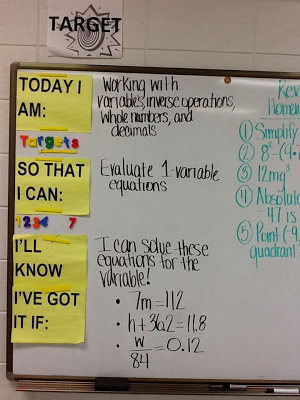 TARGET
TODAY I
AM:
Working with
variables, inverse operations,
whole numbers, and
decimals
Targets
SO THAT
I CAN:
Evaluate 1-variable
equations
1234 7
I'LL
KNOW
I'VE GOT
IT IF:
I can solve these
equations for the
variable!
• 7m=112
• h+36.2=11.8
• w/84=0.12
Rev
Homew
① Simplify
② 8²-(4·
③ 12mg³
④ Absolute
-47 is
⑤ Point (-9,
quadrant